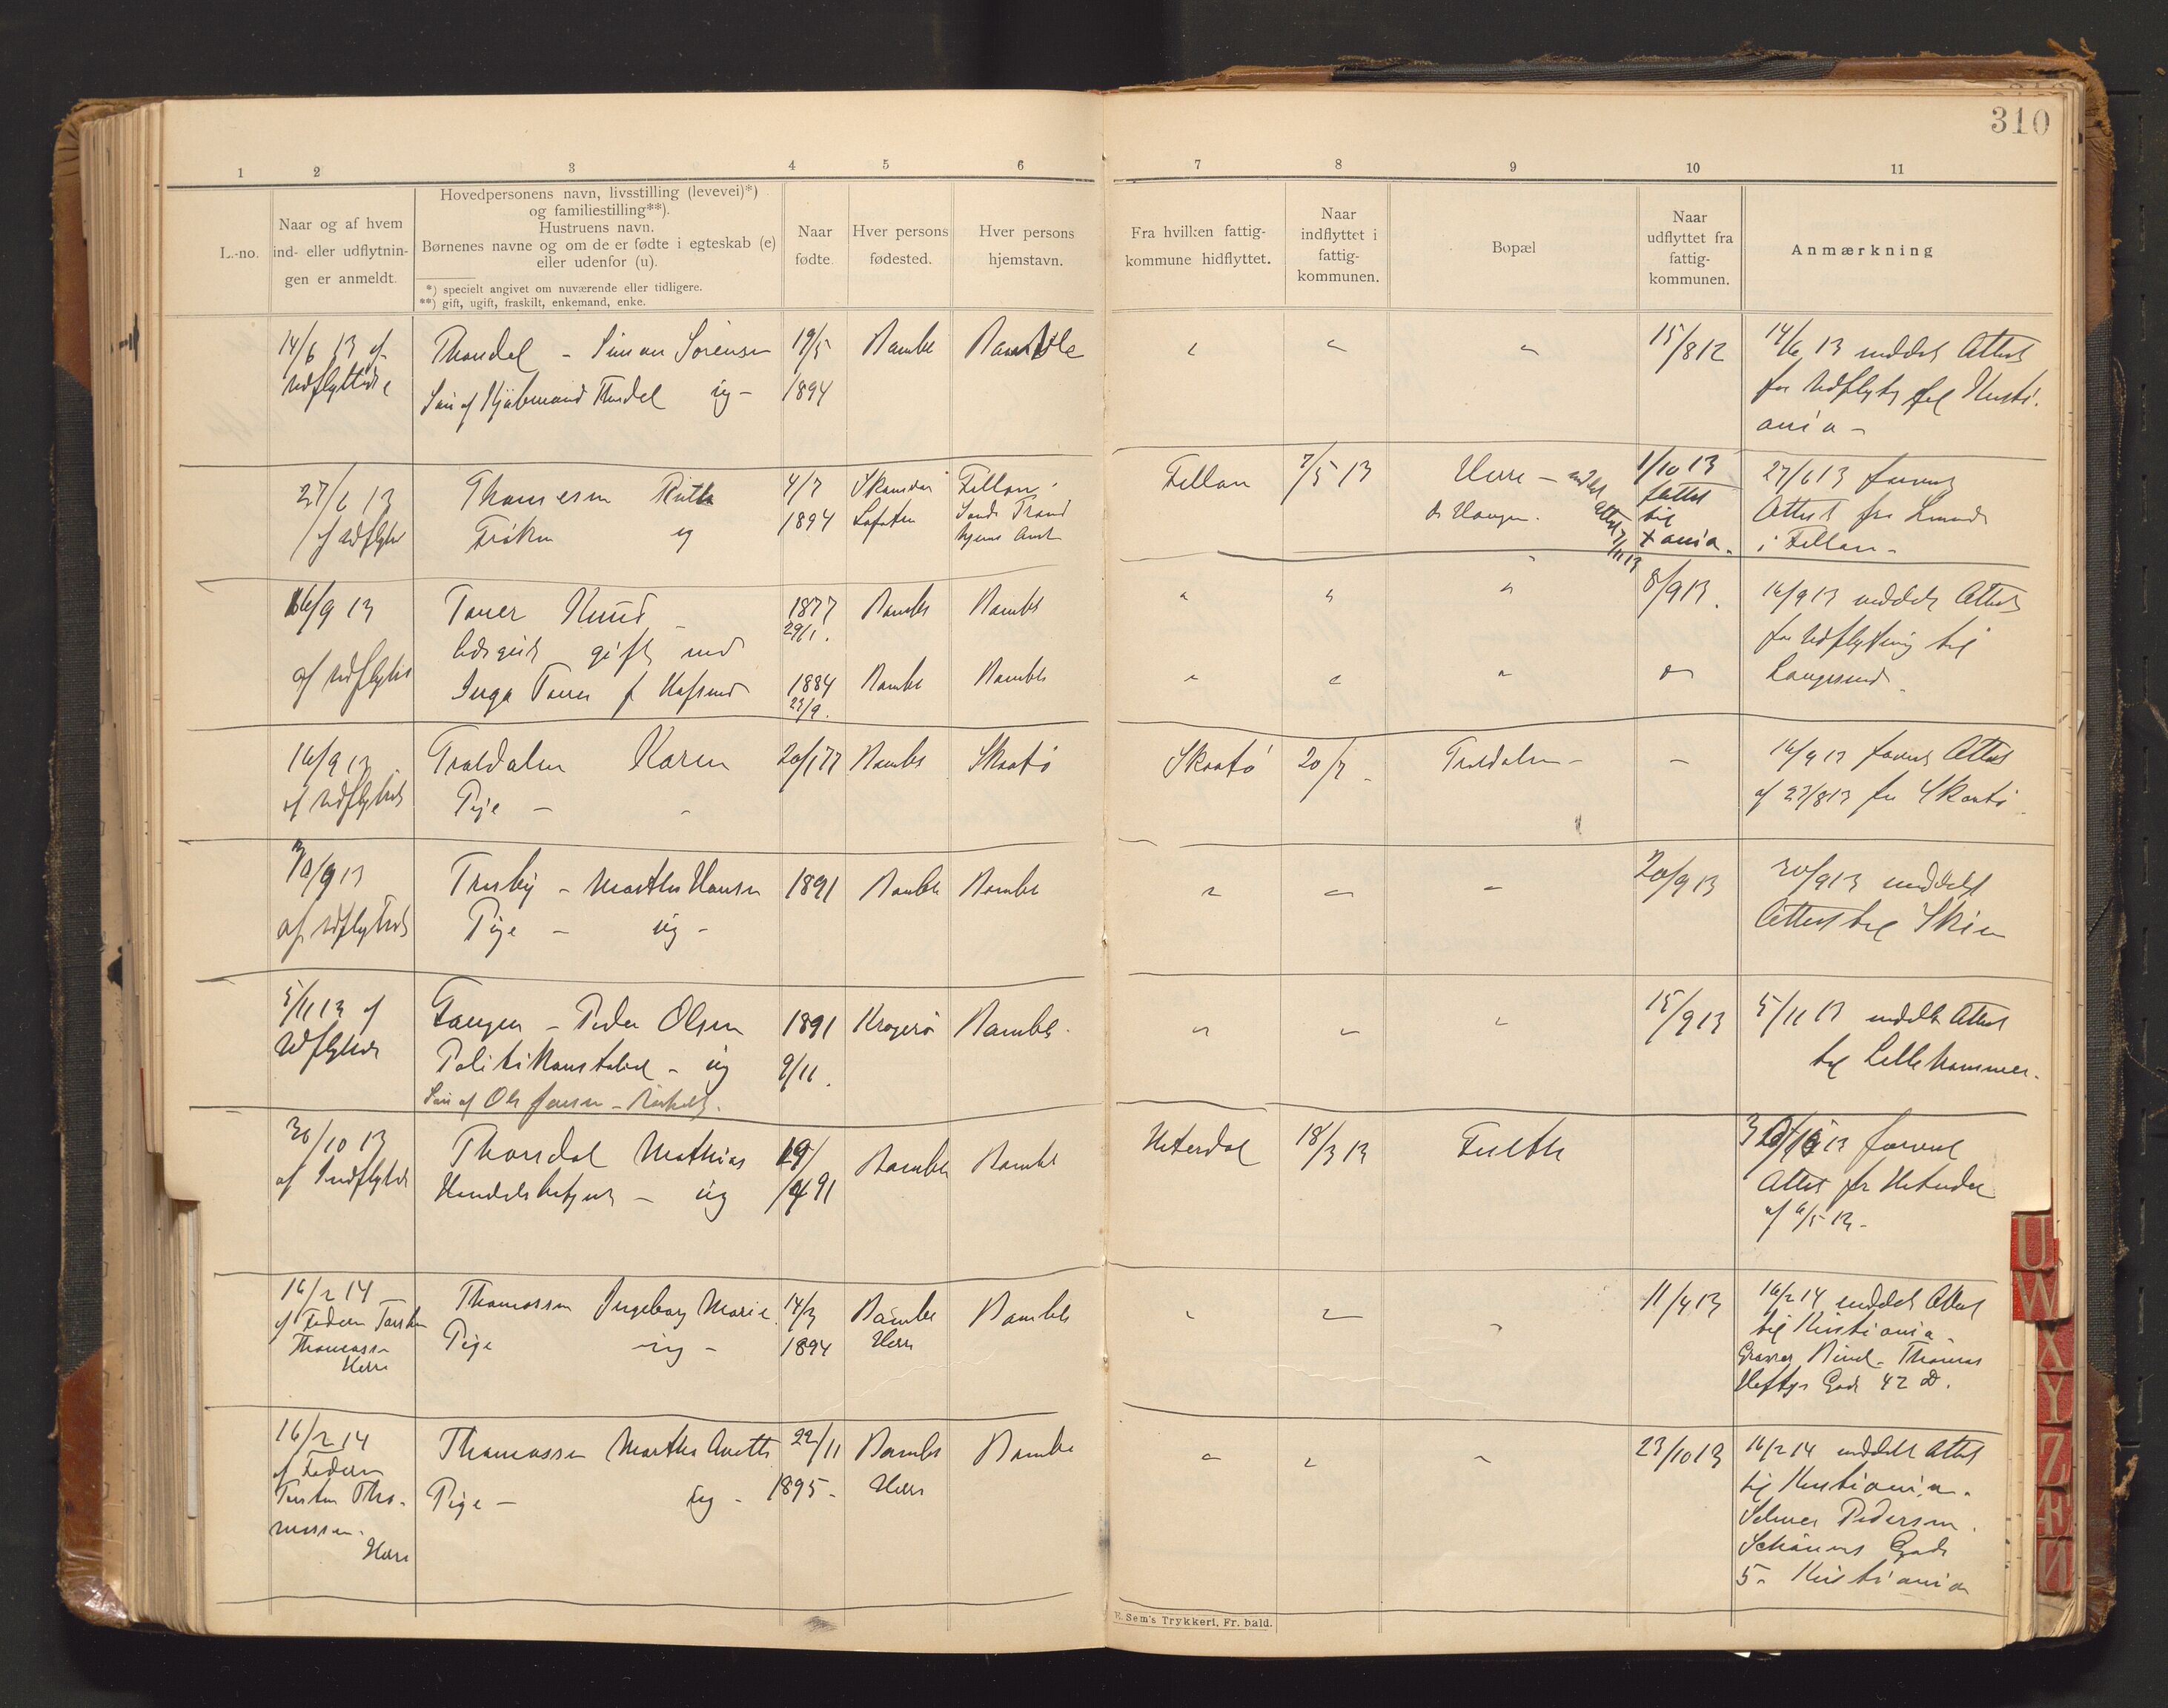 310
1 2 3 4 5 6 7 8 9 10 11
L.-no.
Naar og af hvem
ind- eller udflytnin-
gen er anmeldt.
Hovedpersonens navn, livsstilling (levevei)*)
og familiestilling**).
Hustruens navn.
Børnenes navne og om de er fødte i egteskab (e)
eller udenfor (u).
*) specielt angivet om nuværende eller tidligere.
**) gift, ugift, fraskilt, enkemand, enke.
Naar
fødte.
Hver persons
fødested.
Hver persons
hjemstavn.
Fra hvilken fattig-
kommune hidflyttet.
Naar
indflyttet i
fattig-
kommunen.
Bopæl
Naar
udflyttet fra
fattig-
kommunen.
Anmærkning
14/6 13 af
Udflyttede
Thondal - Simon Sørensen
Søn af Kjøbmand Thondal ug -
19/5
1894
Bamble
Bamble
15/8 12
14/6 13 meddelt Attest
for Udflytg til Kristi-
ania -
27/6 13
af Udflytte
Thomesen Ruth
Frøken ug
4/7
1894
Lofoten
Fillan
Fillan
7/5 13
Herre -
1/10 13
til
X ania.
27/6 13
Attest fra
i Fillan -
16/9 13
af Udflytte
Knud
gift med
Inga
1877
29/1.
1884
23/9.
Bamble
Bamble
Bamble
Bamble
8/9 13.
16/9 13 meddelt Attest
for Udflytning til
Langesund
16/9 13
af Indflyttede
Traldalen Karen
Pige -
20/1 77
Bamble
Skaatø
Skaatø
20/7 -
Traldalen -
16/9 13 forevist Attest
af 27/8 13 fra Skaatø
30/9 13
af Udflyttede
Trosby - Marthe Hansen
Pige - ug -
1891
Bamble
Bamble
20/9 13
30/9 13 meddelt
Attest til Skien
5/11 13 af
Udflyttede
Tangen - Peder Olsen
Politikonstabel - ug
Søn af Ole Jensen -
1891
9/11.
Kragerø
Bamble
15/9 13
5/11 13 meddelt Attest
til Lillehammer.
30/10 13
af Indflyttede
Thorsdal Mathias
Handelsbetjent - ug
19/
/4 91
Bamble
Bamble
Hiterdal
18/3 13
13 forevist
Attest fra Hiterdal
af 6/5 13 -
16/2 14
af Faderen Torsten
Thomassen
Herre
Thomassen Ingeborg Marie
Pige ug -
14/3
1894
Bamble
Herre
Bamble
11/4 13
16/2 14 meddelt Attest
til Kristiania -
Thomas
Heftyes Gade 42
16/2 14
af Faderen
Torsten Tho-
massen.
Herre
Thomassen Marthe Anette
Pige - ug -
22/11
1895 -
Bamble
Herre
Bamble
23/10 13
16/2 14 meddelt Attest
til Kristiania.
Selmer Pedersen.
Schønings Gade
5 - Kristiania
H. Sem's Trykkeri, Fr. hald.
U
W
X
Y
Z
Æ
Ø